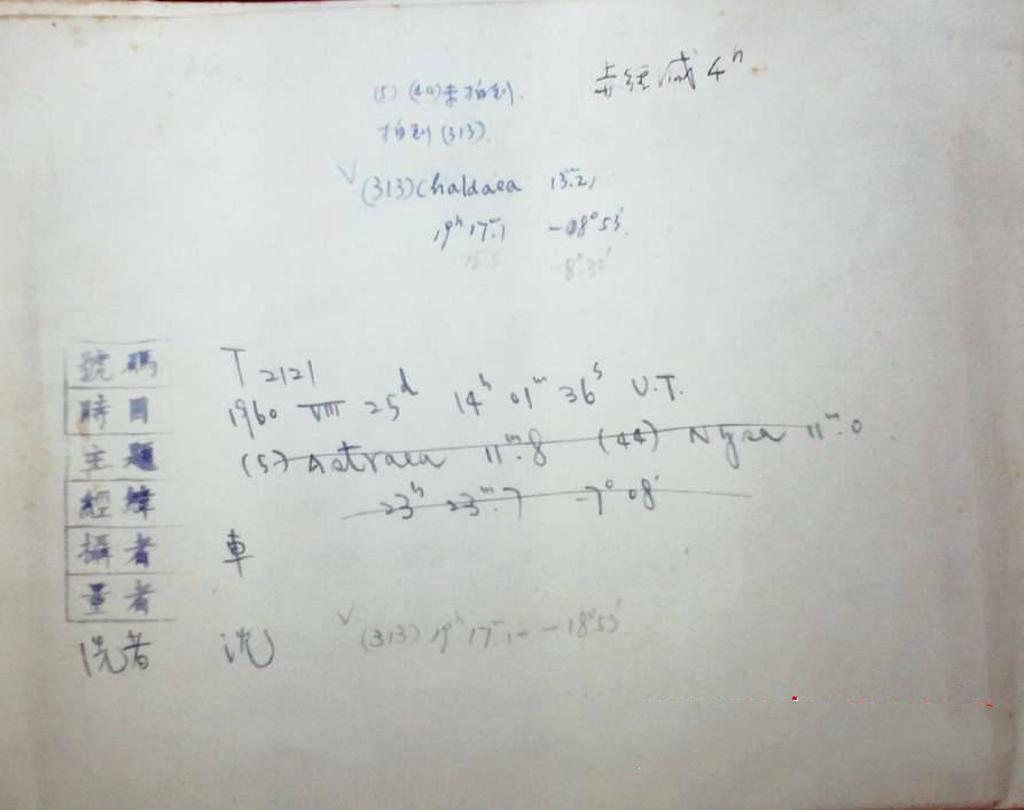 赤经减 4h
(5) (44) 未拍到.
拍到 (313).
V (313) Chaldaea 13m.2
19h 17m.1 -08°53'.
15.5 -8°30'
號碼 T 2121
時日 1960 VIII 25d 14h 01m 36s U.T.
主題 (5) Astraea 11m.8 (44) Nysa 11m.0
經緯 23h 23m.7 -7°08'
攝者 車
量者
V (313) 19h 17m.1 -18°53'
洗者 沈